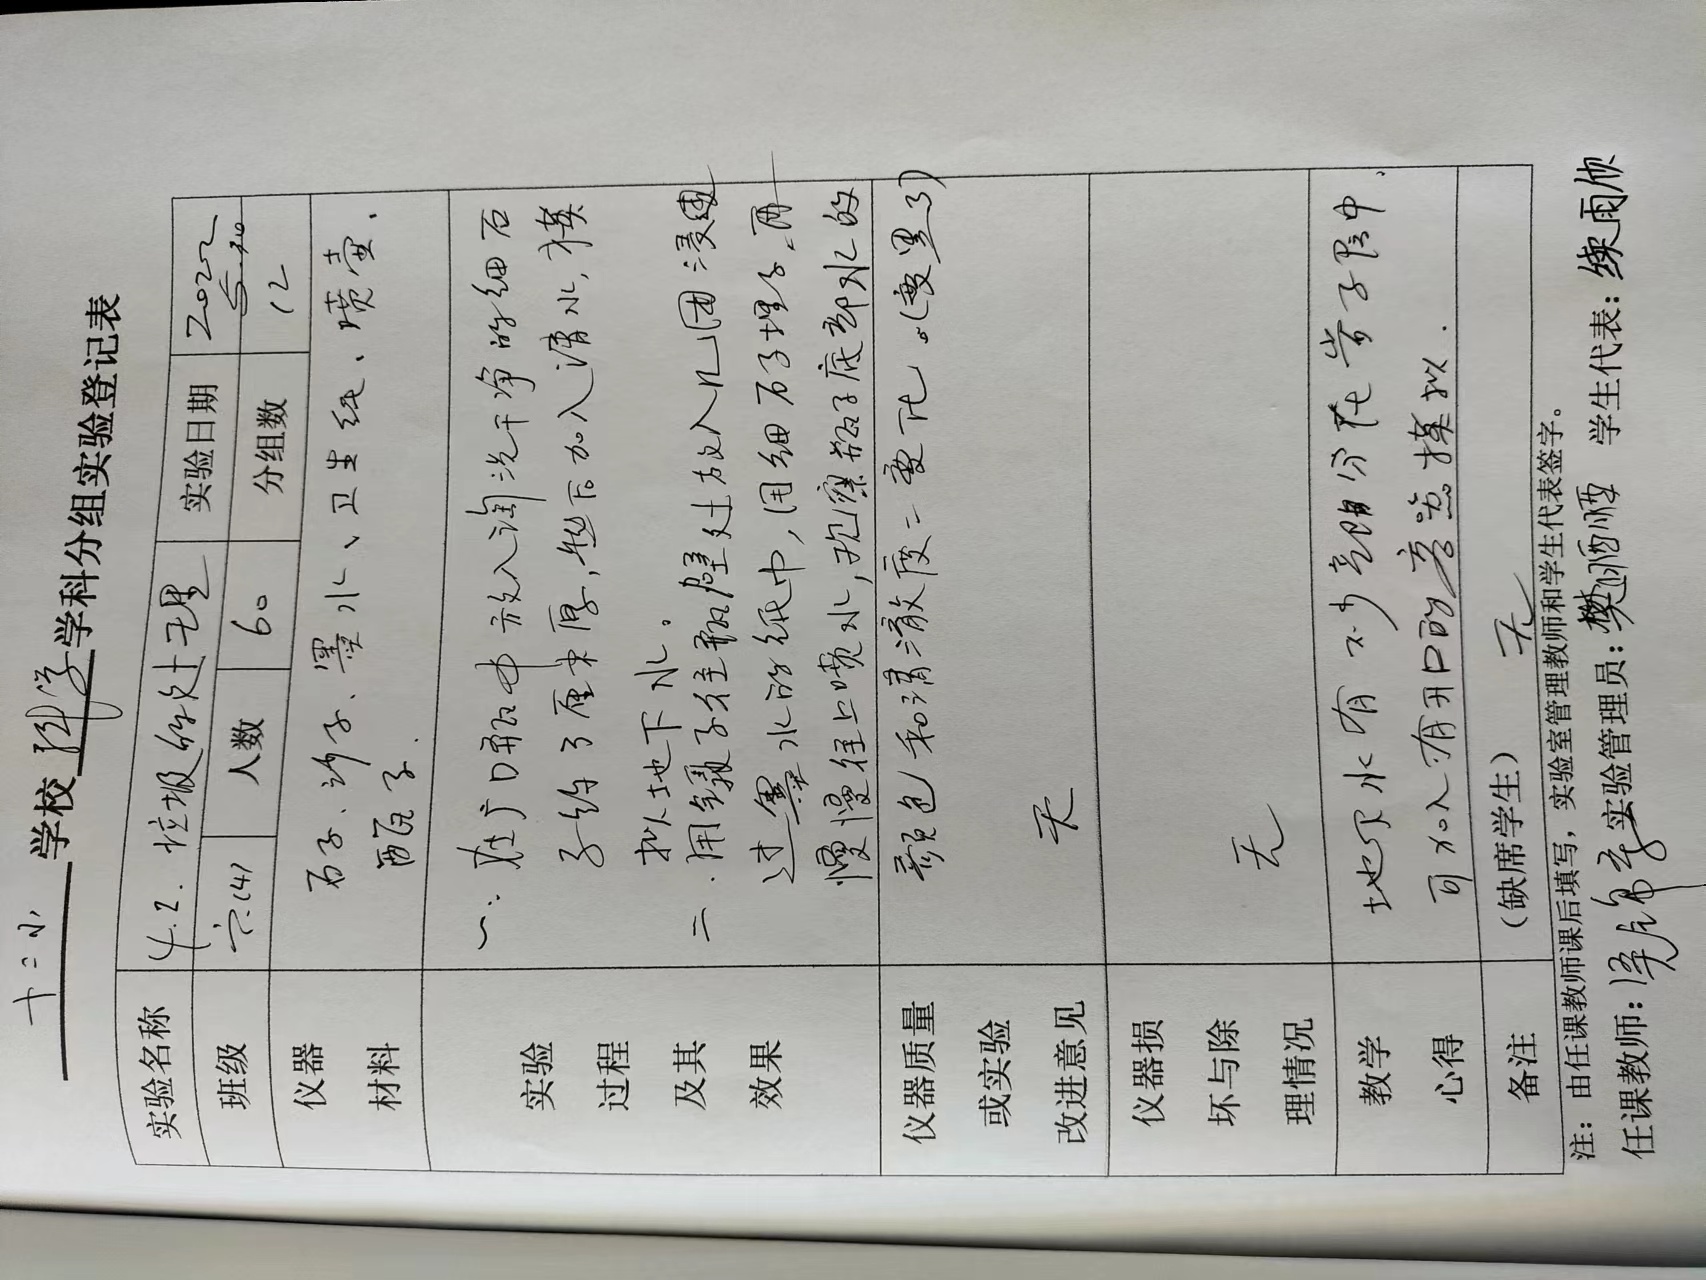 十二小 学校 科学 学科分组实验登记表
实验名称 4.2.垃圾的处理 实验日期 2022 5.20
班级 六(4) 人数 60 分组数 12
仪器材料 石子、沙子、墨水、卫生纸、喷壶、
瓶子.
实验过程及其效果
一、在广口瓶中放入淘洗干净的细石
子约3厘米厚,然后加入清水,模
拟地下水。
二.用镊子往瓶壁处放入几团浸
过墨水的纸巾,用细石子埋好,再
慢慢往上喷水,观察瓶子底部水的
颜色和清澈度=变化。(变黑了)
仪器质量或实验改进意见 无
仪器损坏与除理情况 无
教学心得 地下水有不少部分在岩子隙中,
可加入有开口的容器模拟.
备注 (缺席学生) 无
注:由任课教师课后填写,实验室管理教师和学生代表签字。
任课教师: 实验管理员:樊丽丽 学生代表:练雨欣